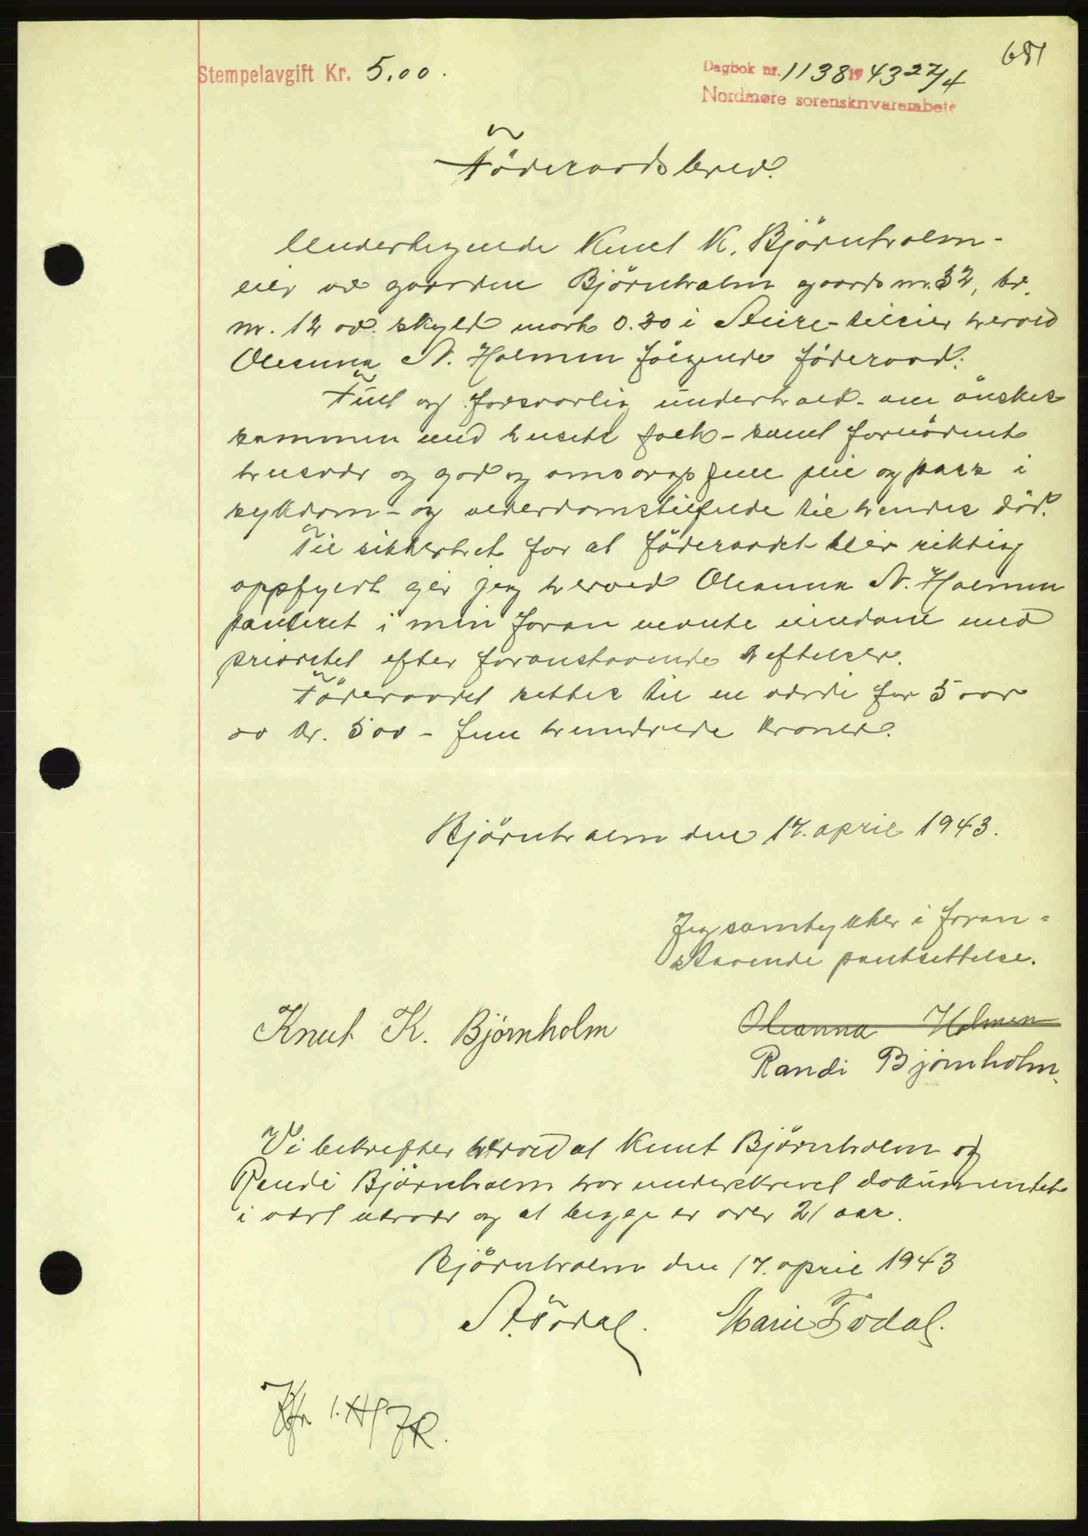 681
Stempelavgift Kr. 5.00.
Dagbok nr. 1138 1943 27/4
Nordmøre sorenskriverembete
Föderaadsbrev.
Undertegnede Knut K. Björnholm -
eier av gaarden Björnholm gaards nr. 32, br.
nr. 12 av skyld mark 0.30 i Stemshaug tilsier herved
Oleanna N. Holmen følgende føderaad:
Fult og forsvarlig underhold - om ønskes
sammen med husets folk - samt fornödent
husvær og god og omsorgsfull pleie og pass i
sykdom - og alderdomstilfelde til hendes död.
Til sikkerhet for at föderaadet blir riktig
oppfylt gir jeg herved Oleanna N. Holmen
panteret i min foran nevnte eiendom med
prioritet efter foranstaaende heftelser.
Föderaadet settes til en verdi for 5 aar
av kr. 500 - fem hundrede kroner.
Björnholm den 17. april 1943.
Jeg samtykker i foran-
staaende pantsettelse.
Knut K. Bjørnholm
Oleanna Holmen
Randi Bjørnholm.
Vi bekrefter herved at Knut Björnholm og
Randi Björnholm har underskrevet dokumentet
i vårt nærvær og at begge er over 21 aar.
Björnholm den 17. april 1943
Marie Todal.